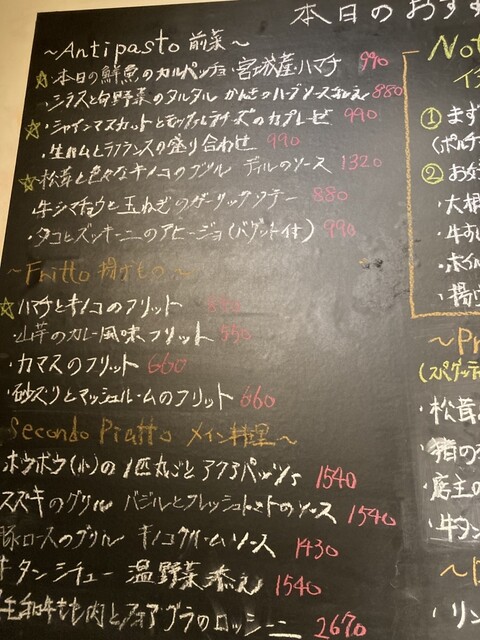 本日のおす
~Antipasto 前菜~
☆・本日の鮮魚のカルパッチョ 宮城産ハマチ 990
・シラスと旬野菜のタルタル かんきつのハーブソース 880
☆・シャインマスカットとモッツァレラチーズのカプレーゼ 990
・生ハムとラフランスの盛り合わせ 990
☆・松茸と色々なキノコのグリル ディルのソース 1320
・牛シマチョウと玉ねぎのガーリックソテー 880
・タコとズッキーニのアヒージョ(バゲット付) 990
~Fritto 揚げもの~
☆・ハマチとキノコのフリット
・山芋のカレー風味フリット 550
・カマスのフリット 660
・砂ズリとマッシュルームのフリット 660
Secondo Piatto メイン料理~
ホウボウ(小)の1匹丸ごとアクアパッツァ 1540
スズキのグリル バジルとフレッシュトマトのソース 1540
豚ロースのグリル キノコクリームソース 1430
牛タンシチュー 温野菜添え 1540
牛もも肉とフォアグラのロッシーニ 2670
Not
①まず
(ポル
②お好
・大根
・牛す
・ホイル
・揚げ
~Pr
(スパゲッティ
・松茸
・猪の
・店主の
・牛タン
~D
・リン